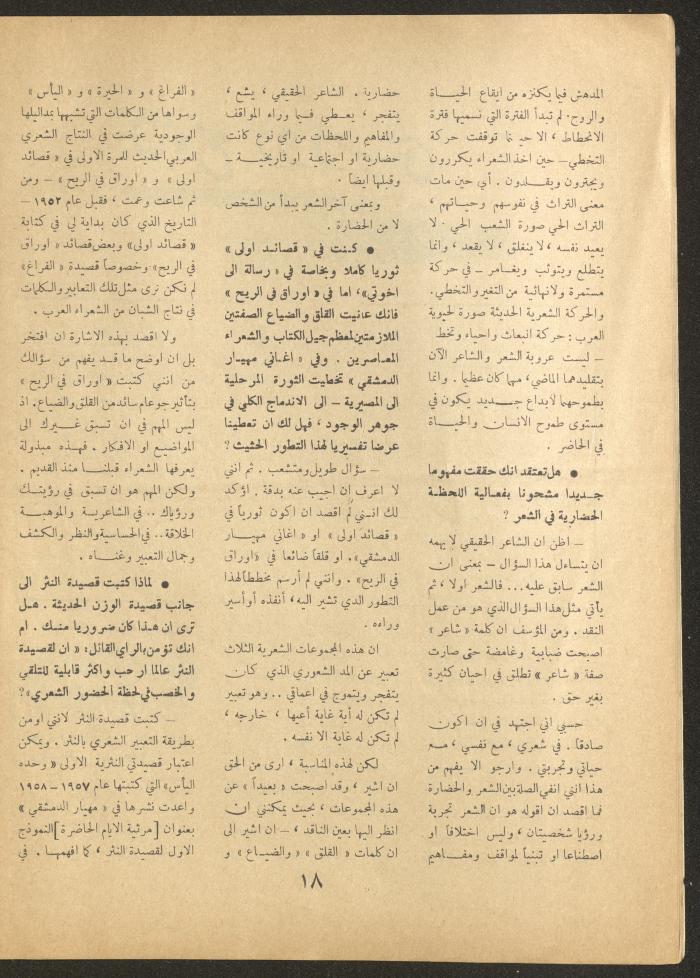 المدهش فيما يكتنزه من ايقاع الحياة
والروح. لم تبدأ الفترة التي نسميها فترة
الانحطاط ، الا حينما توقفت حركة
التخطي – حين اخذ الشعراء يكررون
ويجترون ويقلدون . أي حين مات
معنى التراث في نفوسهم وحياتهم ،
التراث الحي صورة الشعب الحي . لا
يعيد نفسه ، لا ينغلق ، لا يقعد ، وانما
يتطلع ويتوثب ويغامر – في حركة
مستمرة ولانهائية من التغير والتخطي.
والحركة الشعرية الحديثة صورة لحيوية
العرب : حركة انبعاث واحياء وتخط
– ليست عروبة الشعر والشاعر الآن
بتقليدهما الماضي، مهما كان عظيما . وانما
بطموحهما لابداع جديد يكون في
مستوى طموح الانسان والحياة
في الحاضر .
● هل تعتقد انك حققت مفهوما
جديدا مشحونا بفعالية اللحظة
الحضارية في الشعر ؟
– اظن ان الشاعر الحقيقي لا يهمه
ان يتساءل هذا السؤال – بمعنى ان
الشعر سابق عليه... فالشعر اولا ، ثم
يأتي مثل هذا السؤال الذي هو من عمل
النقد . ومن المؤسف ان كلمة « شاعر »
اصبحت ضبابية وغامضة حتى صارت
صفة « شاعر » تطلق في احيان كثيرة
بغير حق .
حسبي اني اجتهد في ان اكون
صادقاً . في شعري ، مع نفسي ، مع
حياتي وتجربتي . وارجو الا يفهم من
هذا انني انفي الصلة بين الشعر والحضارة
فما اقصد ان اقوله هو ان الشعر تجربة
ورؤيا شخصيتان ، وليس اختلاقاً او
اصطناعا او تبنياً لمواقف ومفاهيم
حضارية . الشاعر الحقيقي ، يشع ،
يتفجر ، يعطي فيما وراء المواقف
والمفاهيم واللحظات من اي نوع كانت
حضارية او اجتماعية او تاريخية –
وقبلها ايضاً .
وبمعنى آخر الشعر يبدأ من الشخص
لا من الحضارة .
● كنت في « قصائد اولى »
ثوريا كاملا وبخاصة في « رسالة الى
اخوتي»، اما في « اوراق في الريح »
فانك عانيت القلق والضياع الصفتين
الملازمتين لمعظم جيل الكتاب والشعراء
المعاصرين . وفي « اغاني مهيار
الدمشقي » تخطيت الثورة المرحلية
الى المصيرية – الى الاندماج الكلي في
جوهر الوجود ، فهل لك ان تعطينا
عرضا تفسيريا لهذا التطور الحثيث ؟
– سؤال طويل ومتشعب . ثم انني
لا اعرف ان اجيب عنه بدقة . اؤكد
لك انني لم اقصد ان اكون ثورياً في
« قصائد اولى » او « اغاني مهيار
الدمشقي». او قلقاً ضائعا في «اوراق
في الريح» . وانني لم أرسم مخططاً لهذا
التطور الذي تشير اليه، أنفذه أو أسير
وراءه .
ان هذه المجموعات الشعرية الثلاث
تعبير عن المد الشعوري الذي كان
يتفجر ويتموج في اعماقي .. وهو تعبير
لم تكن له أية غاية أعيها ، خارجه ،
لم تكن له غاية الا نفسه .
لكن لهذه المناسبة ، ارى من الحق
ان اشير ، وقد اصبحت « بعيداً » عن
هذه المجموعات ، بحيث يمكنني ان
انظر اليها بعين الناقد ، – ان اشير الى
ان كلمات « القلق » « والضياع » و
« الفراغ » و « الحيرة » و « اليأس »
وسواها من الكلمات التي تشبهها بمداليلها
الوجودية عرضت في النتاج الشعري
العربي الحديث للمرة الاولى في « قصائد
اولى » و « اوراق في الريح » – ومن
ثم شاعت وعمت ، فقبل عام ١٩٥٢ –
التاريخ الذي كان بداية لي في كتابة
« قصائد اولى» وبعض قصائد « اوراق
في الريح» وخصوصاً قصيدة « الفراغ»
لم نكن نرى مثل تلك التعابير والكلمات
في نتاج الشبان من الشعراء العرب .
ولا اقصد بهذه الاشارة ان افتخر
بل ان اوضح ما قد يفهم من سؤالك
من انني كتبت « اوراق في الريح »
بتأثير جو عام سائد من القلق والضياع. اذ
ليس المهم في ان تسبق غيرك الى
المواضيع او الافكار . فهذه مبذولة
يعرفها الشعراء قبلنا منذ القديم .
ولكن المهم هو ان تسبق في رؤيتك
ورؤياك .. في الشاعرية والموهبة
الخلاقة.. في الحساسية والنظر والكشف
وجمال التعبير وغناه .
● لماذا كتبت قصيدة النثر الى
جانب قصيدة الوزن الحديثة . هل
ترى ان هذا كان ضروريا منك . ام
انك تؤمن بالرأي القائل: « ان لقصيدة
النثر عالما ارحب واكثر قابلية للتلقي
والخصب في لحظة الحضور الشعري»؟
– كتبت قصيدة النثر لانني اومن
بطريقة التعبير الشعري بالنثر . ويمكن
اعتبار قصيدتي النثرية الاولى « وحده
اليأس» التي كتبتها عام ١٩٥٧ – ١٩٥٨
واعدت نشرها في « مهيار الدمشقي »
بعنوان [مرثية الايام الحاضرة] النموذج
الاول لقصيدة النثر ، كما افهمها . في
١٨